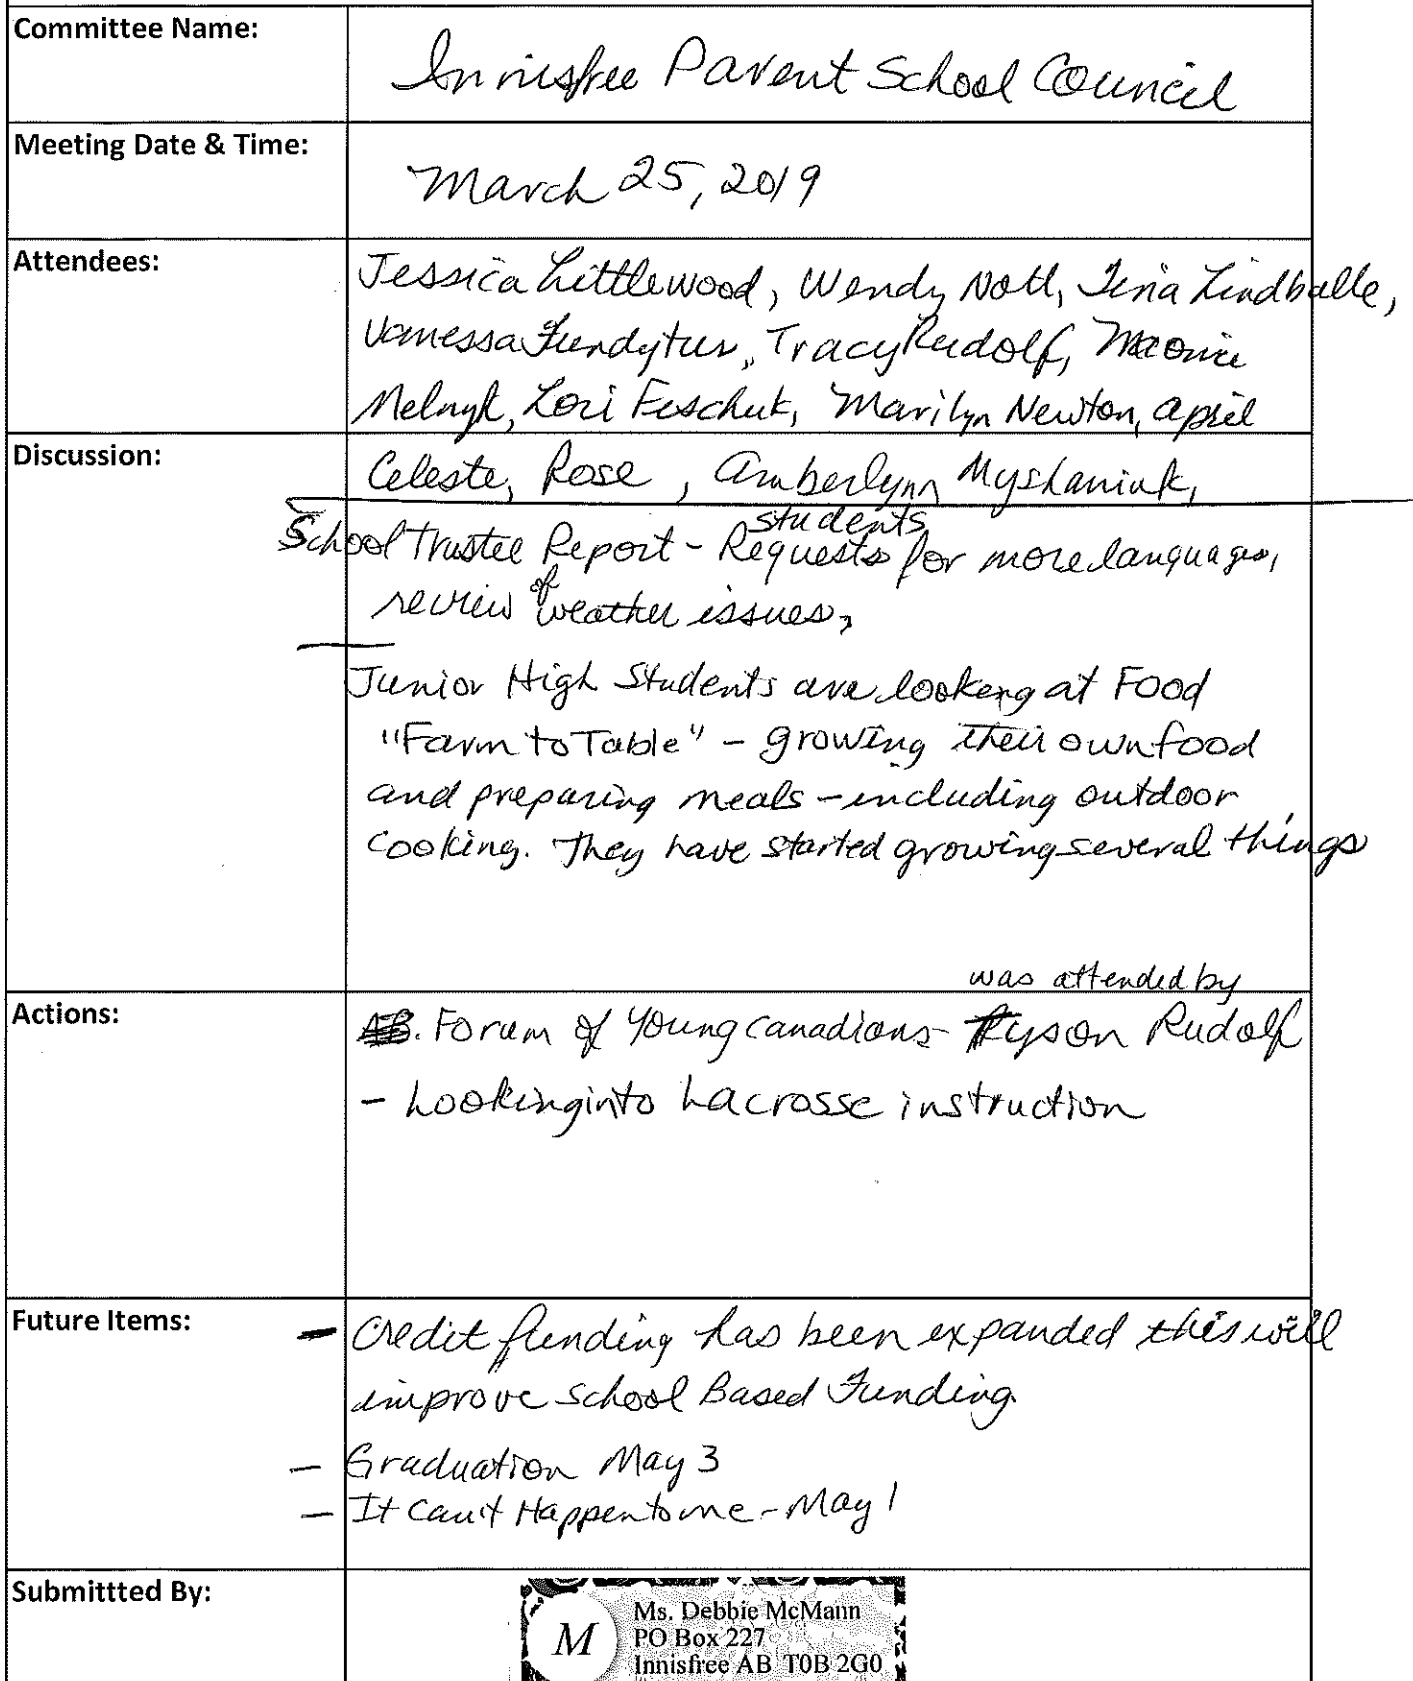 Committee Name:
Innisfree Parent School Council
Meeting Date & Time:
March 25, 2019
Attendees:
Jessica Littlewood, Wendy Nott, Tina Lindballe,
Vanessa Fundytus, Tracy Rudolf, Maxine
Melnyk, Lori Feschuk, Marilyn Newton, April
Discussion:
Celeste, Rose, Amberlynn Myshaniuk,
students
School Trustee Report - Requests for more languages,
review of weather issues,
Junior High Students are looking at Food
"Farm to Table" - growing their own food
and preparing meals - including outdoor
cooking. They have started growing several things
was attended by
Actions:
AB. Forum of Young Canadians - Tyson Rudolf
- Looking into Lacrosse instruction
Future Items:
- Credit funding has been expanded this will
improve School Based Funding.
- Graduation May 3
- It Can't Happen to me - May 1
Submittted By:
M
Ms. Debbie McMann
PO Box 227
Innisfree AB T0B 2G0